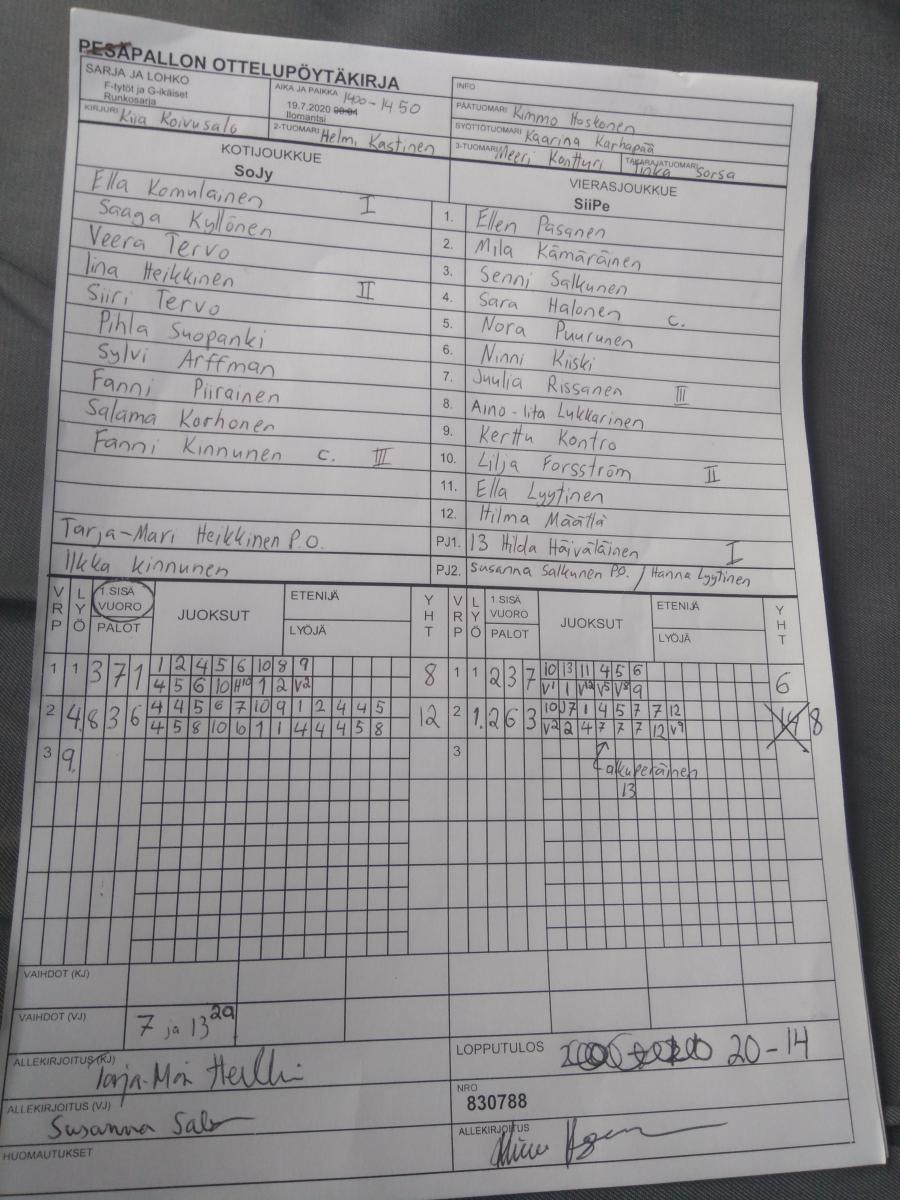 PESÄPALLON OTTELUPÖYTÄKIRJA
SARJA JA LOHKO
F-tytöt ja G-ikäiset
Runkosarja
AIKA JA PAIKKA 1400-1450
19.7.2020
Ilomantsi
INFO
PÄÄTUOMARI Kimmo Hoskonen
KIRJURI Kiia Koivusalo
2-TUOMARI Helmi Kastinen
SYÖTTÖTUOMARI Kaarina Karhapää
3-TUOMARI Meeri Kontturi
TAKARAJATUOMARI Tinka Sorsa
KOTIJOUKKUE
SoJy
VIERASJOUKKUE
SiiPe
Ella Komulainen I
1. Ellen Pasanen
Saaga Kyllönen
2. Mila Kämäräinen
Veera Tervo
3. Senni Salkunen
Iina Heikkinen II
4. Sara Halonen c.
Siiri Tervo
5. Nora Puurunen
Pihla Suopanki
6. Ninni Kiiski
Sylvi Arffman
7. Juulia Rissanen III
Fanni Piirainen
8. Aino-Iita Lukkarinen
Salama Korhonen
9. Kerttu Kontro
Fanni Kinnunen c. III
10. Lilja Forsström II
11. Ella Lyytinen
12. Hilma Määttä
Tarja-Mari Heikkinen P.O.
PJ1. 13 Hilda Häiväläinen I
Ilkka Kinnunen
PJ2. Susanna Salkunen P.O. / Hanna Lyytinen
VRP LYÖ 1.SISÄ VUORO PALOT JUOKSUT ETENIJÄ LYÖJÄ YHT
VRP LYÖ 1.SISÄ VUORO PALOT JUOKSUT ETENIJÄ LYÖJÄ YHT
1 1 3 7 1 1 2 4 5 6 10 8 9 8
4 5 6 10 H10 1 2 V2
1 1 2 3 7 10 13 11 4 5 6 6
V1 1 V12 V5 V8 9
2 4. 8 3 6 4 4 5 6 7 10 9 1 2 4 4 5 12
4 5 8 10 6 1 1 4 4 4 5 8
2 1. 2 6 3 10 7 1 4 5 7 7 12 8
V2 2 4 7 7 7 12 V9
3 9.
3
alkuperäinen
13
VAIHDOT (KJ)
VAIHDOT (VJ) 7 ja 13 2a
ALLEKIRJOITUS (KJ)
LOPPUTULOS 20-14
ALLEKIRJOITUS (VJ) Susanna
NRO
830788
HUOMAUTUKSET
ALLEKIRJOITUS